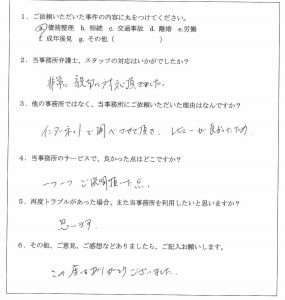 1. ご依頼いただいた事件の内容に丸をつけてください。
a. 債務整理 b. 相続 c. 交通事故 d. 離婚 e. 労働
f. 成年後見 g. その他（　　　　　）
2. 当事務所弁護士、スタッフの対応はいかがでしたか？
非常に親切に対応頂きました。
3. 他の事務所ではなく、当事務所にご依頼いただいた理由はなんですか？
インターネットで調べさせて頂き、レビューが良かったため
4. 当事務所のサービスで、良かった点はどこですか？
一つ一つご説明頂いた点。
5. 再度トラブルがあった場合、また当事務所を利用したいと思いますか？
思います。
6. その他、ご意見、ご感想などありましたら、ご記入お願いします。
この度はありがとうございました。